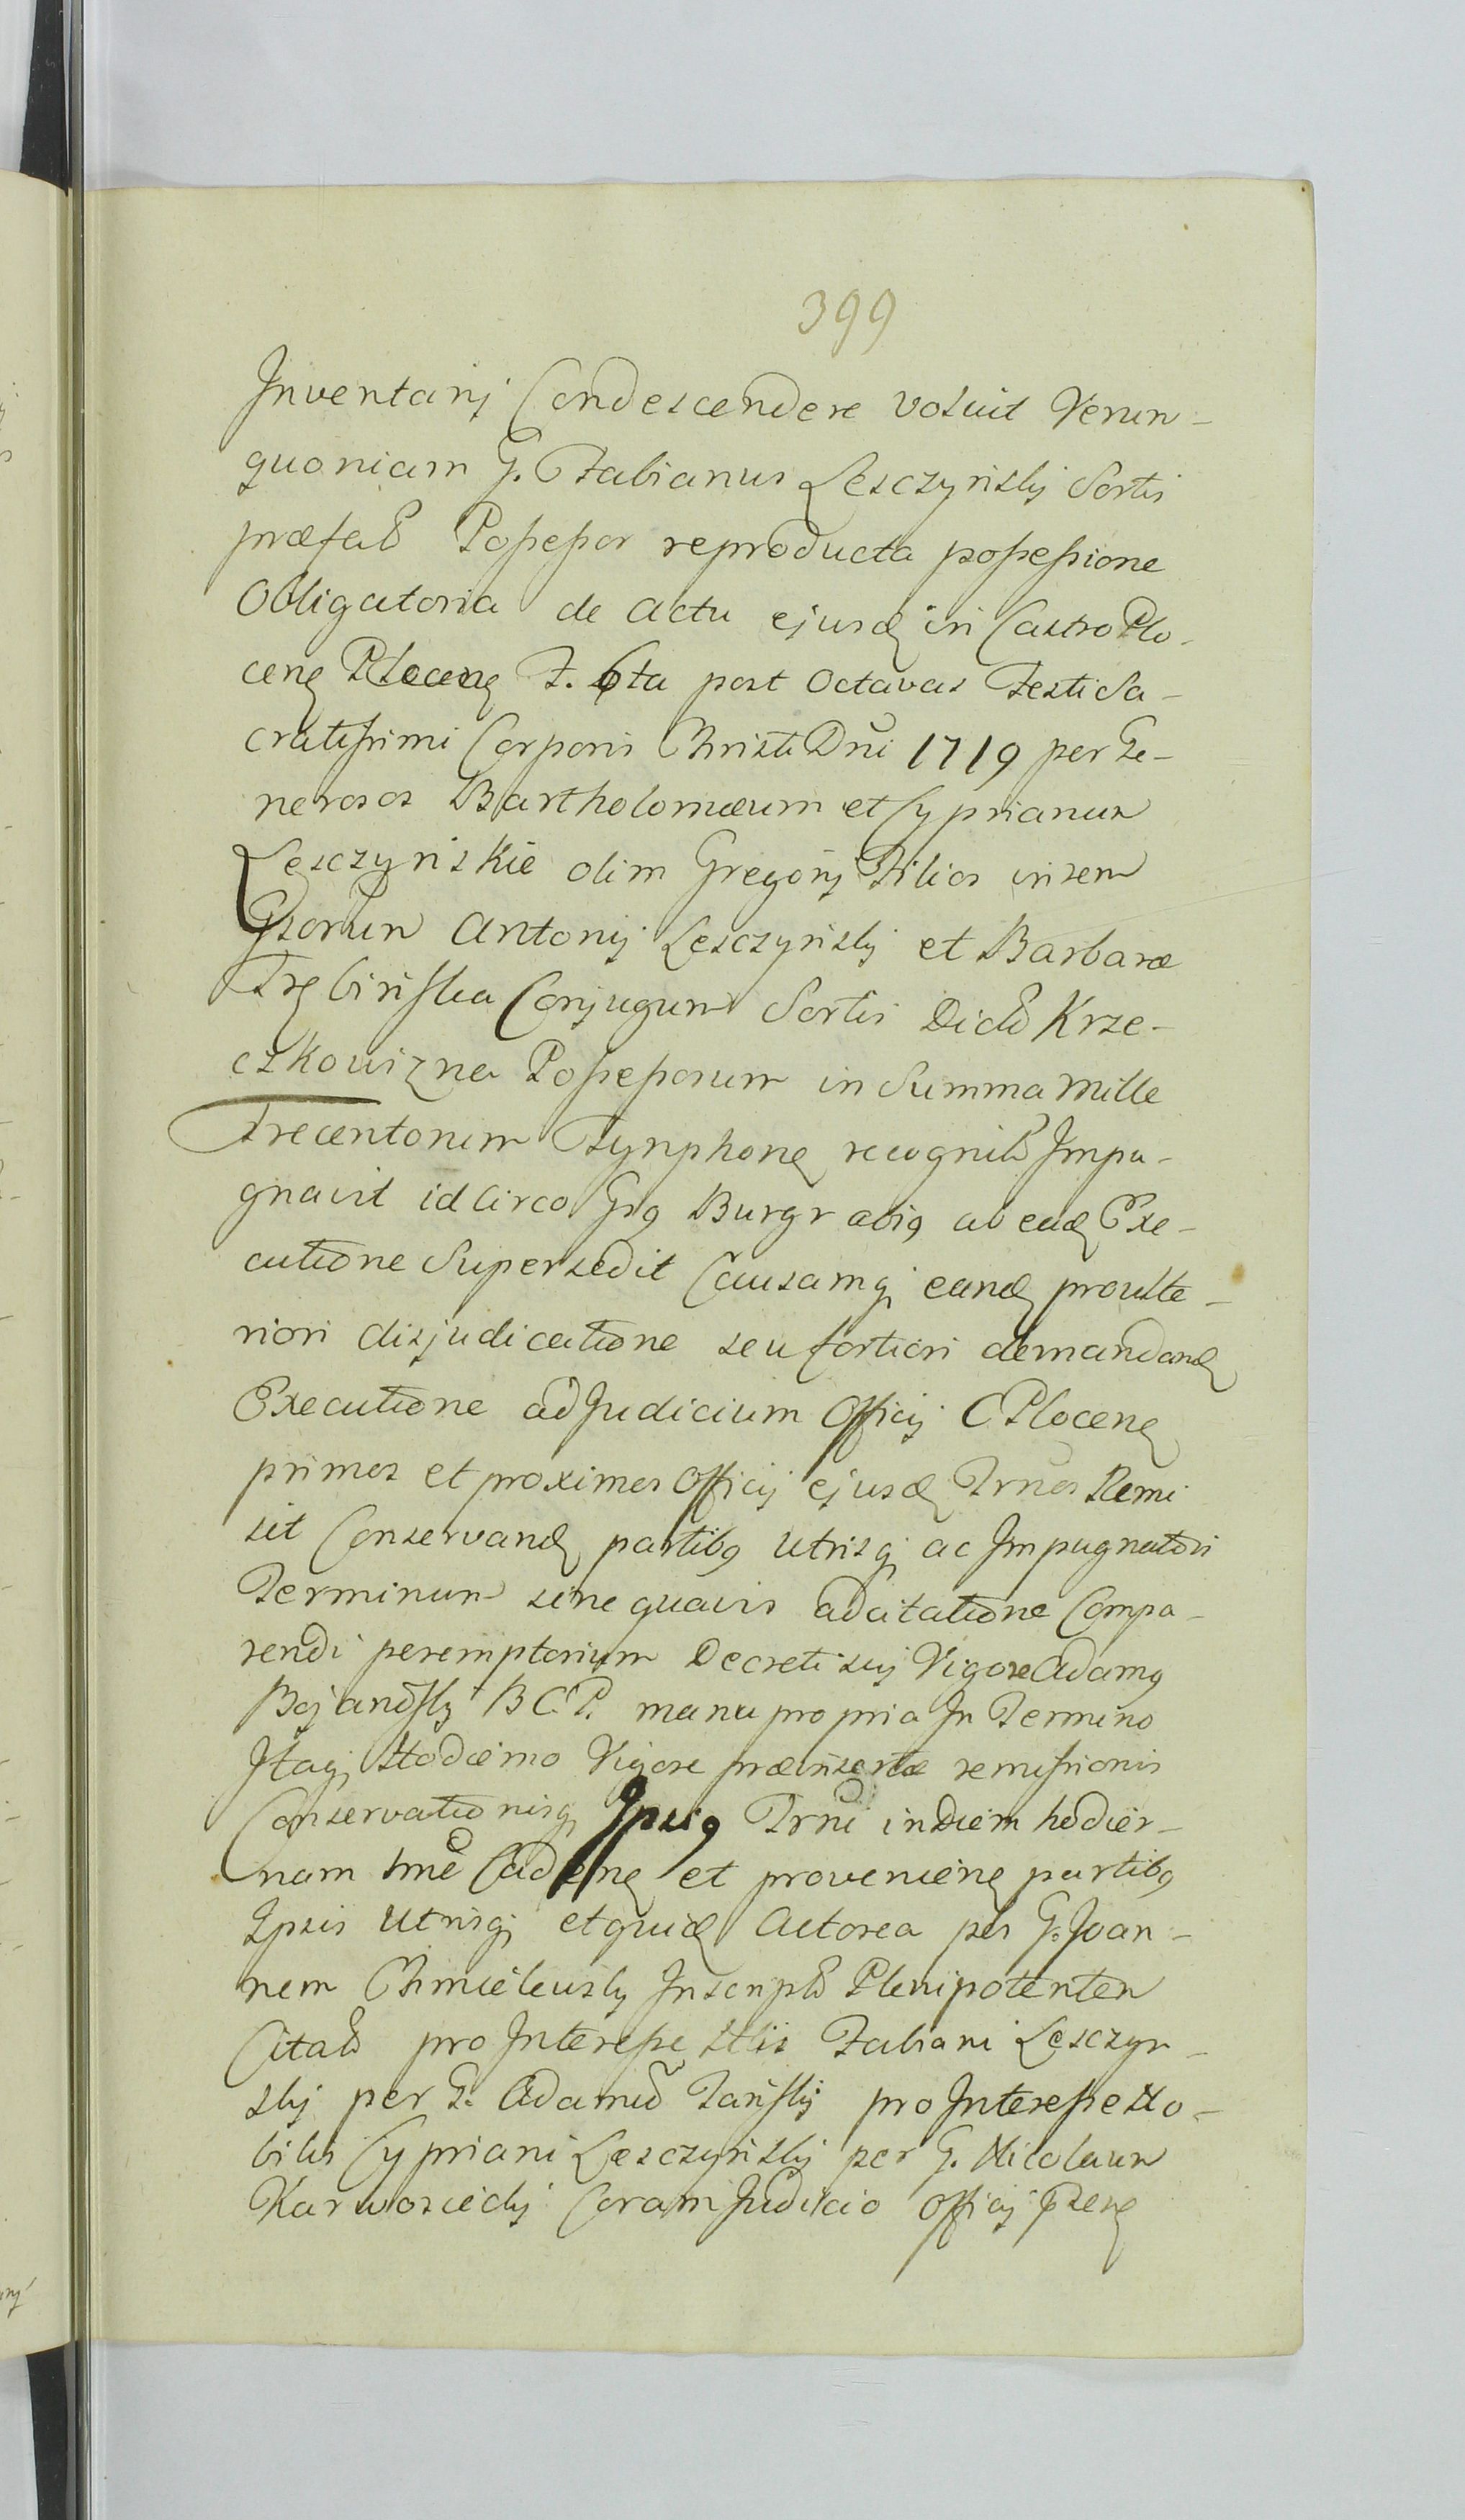 399
Inventarij Condescendere voluit Verun-
quoniam G. Fabianus Lesczyński Sortis
præfat Possessor reproducta possessione
Obligatoria de actu ejusd in Castro Plo-
cen Plocen F. 6ta post Octavas Festi Sa-
cratissimi Corporis Christi Dni 1719 per Ge-
nerosos Bartholomæum et Cyprianum
Lesczynskie olim Gregorij Filios in rem
Gsorum Antonij Lesczyński et Barbaræ
Trębinska Conjugum Sortis Dict Krze-
czkowizna Possessorum in Summa Mille
Trecentorum Tynphon recognit Impu-
gnavit idcirco Gsq Burgrabiq ab ead Exe-
cutione Supersedit Causamq eand pro ulte-
riori disjudicatione seu fortiori demandand
Executione ad Judicium Officij C Plocen
primos et proximos Officij ejusd Trnos Remi
sit Conservand partibq utrisq ac Impugnatori
Terminum sine quavis adcitatione Compa-
rendi peremptorium Decreti sui Vigore Adamq
Bojanowski B C. P. manu propria In Termino
Itaq Hodierno Vigore præinsertæ remissionis
Conservationisq Ipsiq Trni in Diem hodier-
nam sme Caden et provenien partibq
Ipsis utrisq et quid Actorea per G. Joan-
nem Chmielewski Inscript Plenipotentem
Citat pro Interesse Nlis Fabiani Lesczyn-
ski per G. Adamum Tański pro Interesse No-
bilis Cypriani Lesczyński per G. Nicolaum
Karwosiecki Coram Judicio Officij Psen